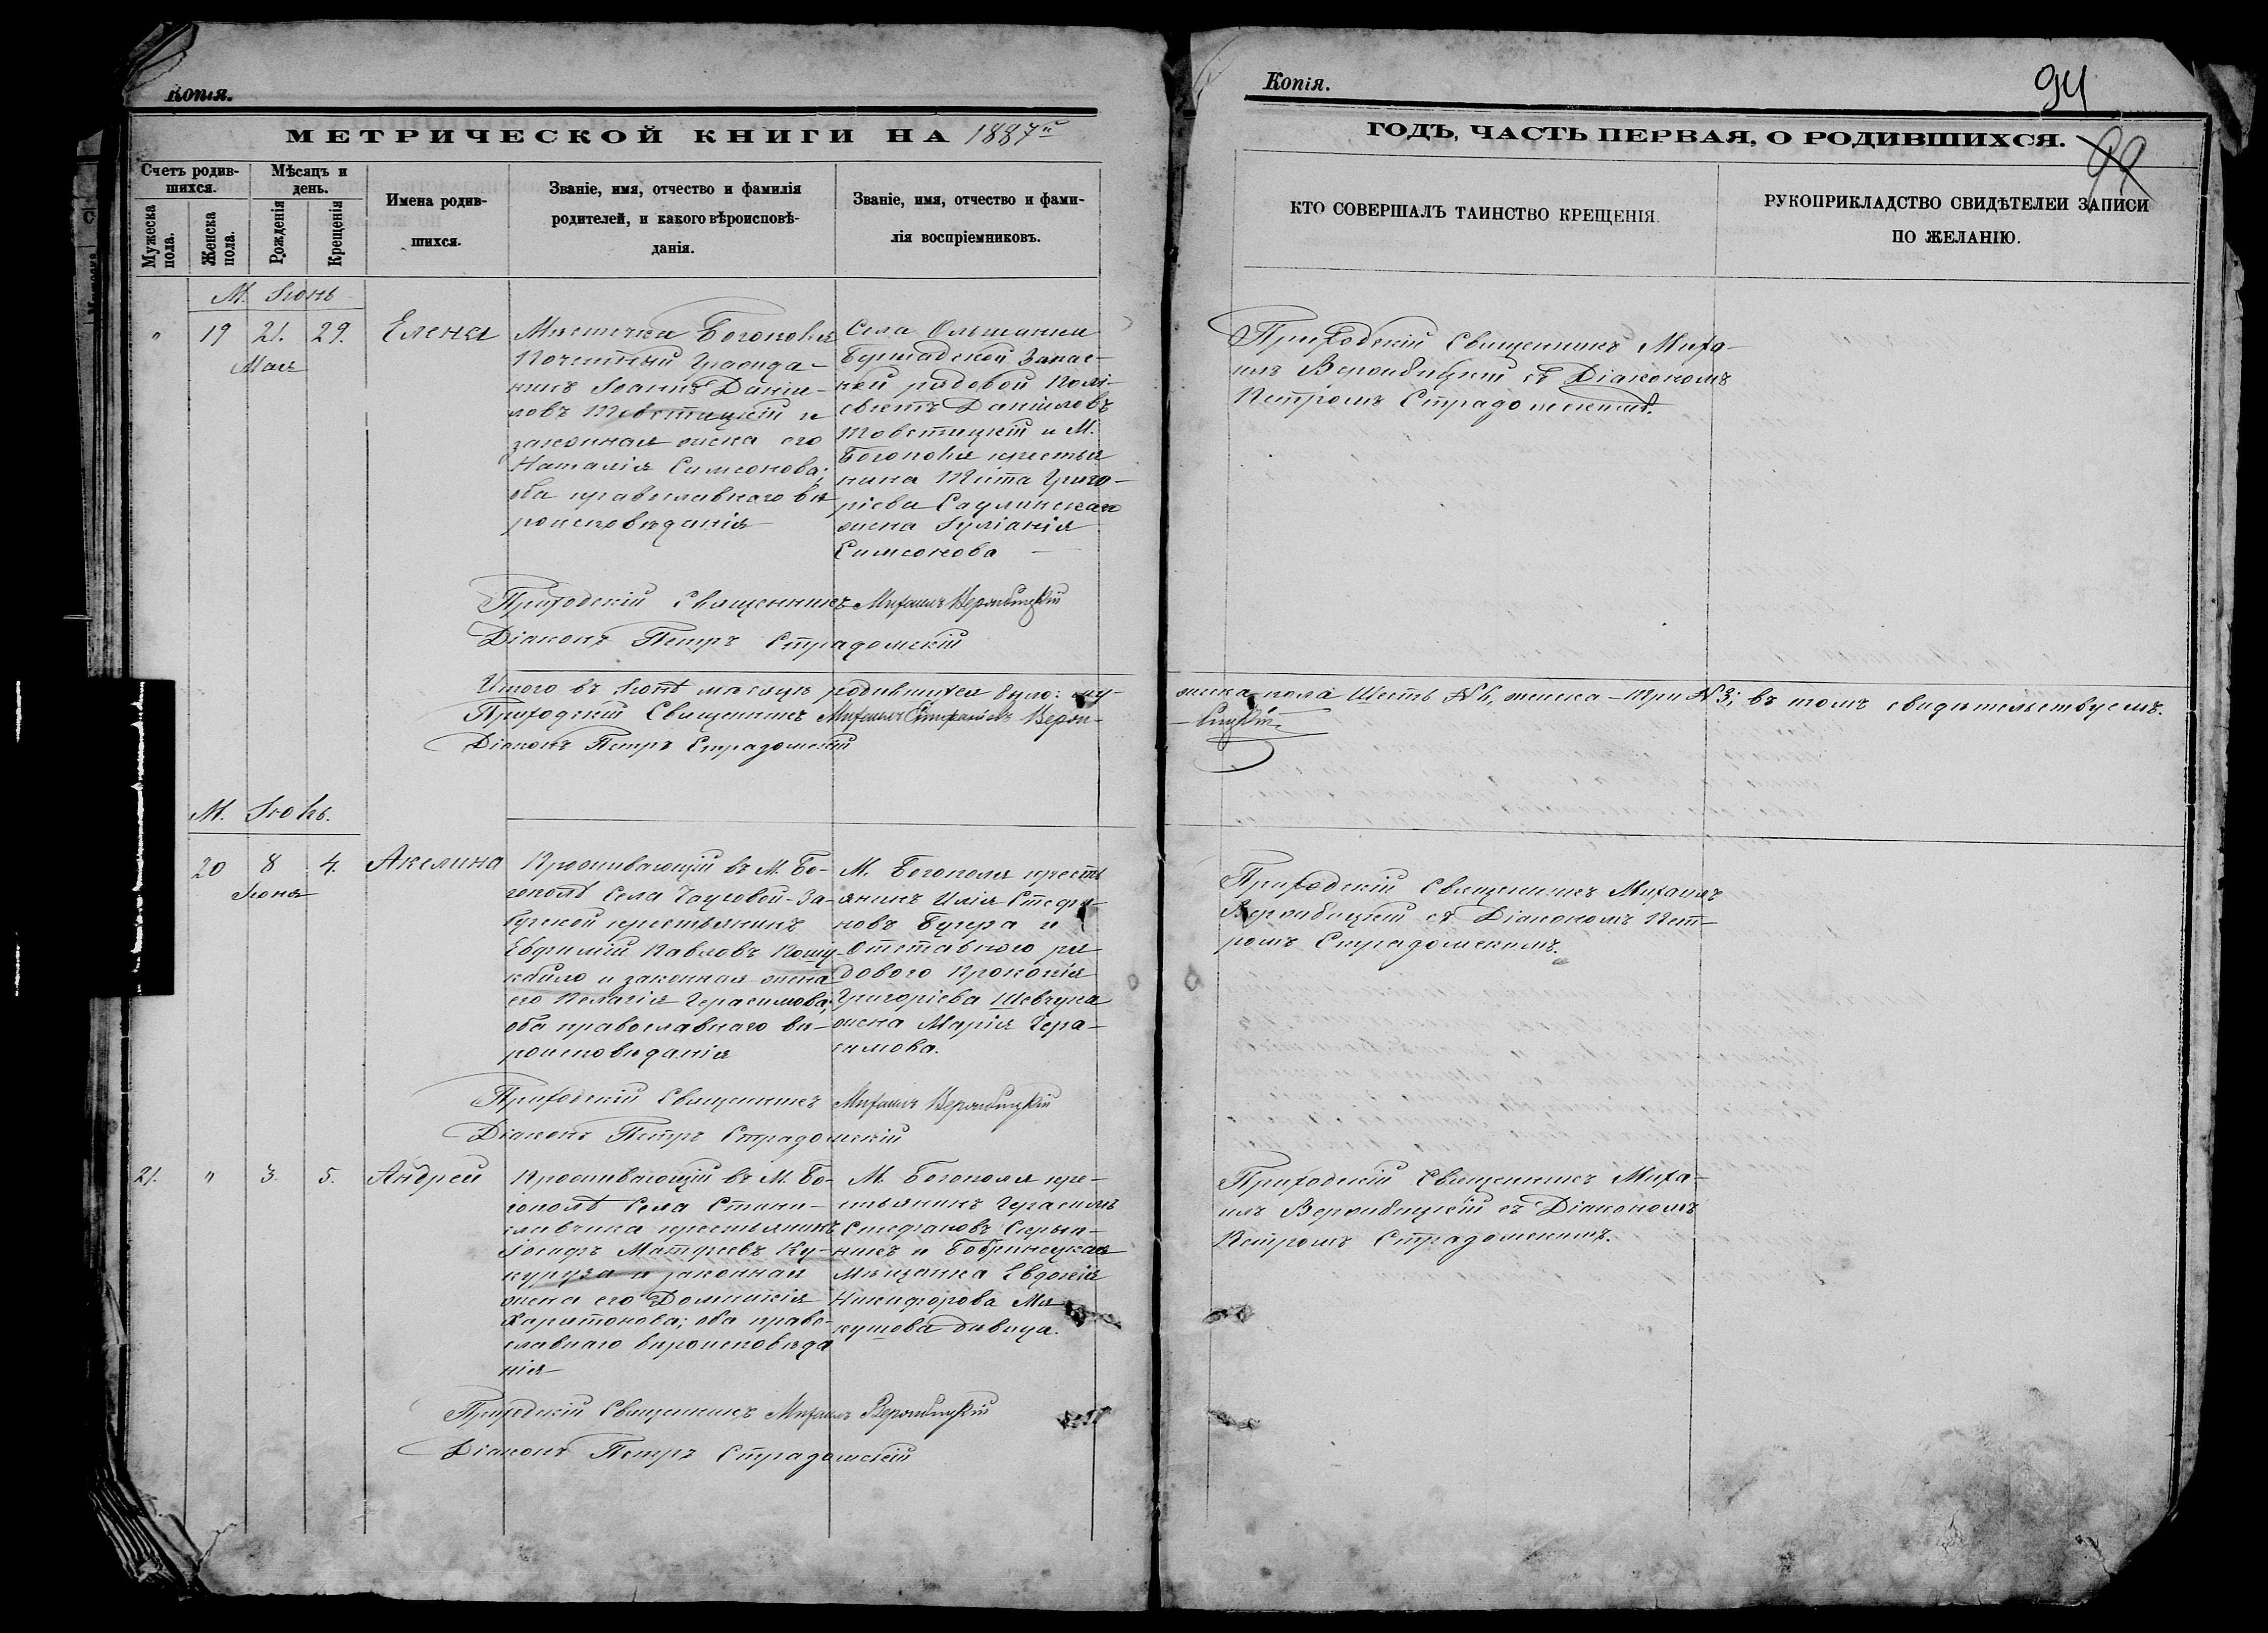 Копія.
МЕТРИЧЕСКОЙ КНИГИ НА 1887й
Счетъ родив-
шихся.
Мужеска пола.
Женска пола.
Мѣсяцъ и
день.
Рожденія
Крещенія
Имена родив-
шихся.
Званіе, имя, отчество и фамилія
родителей, и какого вѣроисповѣ-
данія.
Званіе, имя, отчество и фами-
лія воспріемниковъ.
М. Іюнь
" 19 21. 29. Елена
Мая
Мѣстечка Богополя
Почетный Гражда-
нинъ Іоаннъ Даніи-
ловъ Товстицкій и
законная жена его
Наталія Симеонова;
оба православнаго вѣ
роисповѣданія
Села Ольшанки
Бершадской Запас-
ной рядовой Полі-
евктъ Даніиловъ
Товстицкій и М.
Богополя крестья
нина Тита Григо-
ріева Садлинскаго
жена Іуліанія
Симеонова
Приходскій Священникъ Михаилъ Вербицкій
Діаконъ Петръ Страдомскій
Итого въ Іюнѣ мѣсяцѣ родившихся было: му-
Приходскій Священникъ Михаилъ Верби-
Діаконъ Петръ Страдомскій
М. Іюль.
20 8 4. Акелина
Іюня
Проживающій въ М. Бо-
гополѣ Села Чаусовой-За-
крестьянинъ
Евфимій Павловъ Кошу-
кбило и законная жена
его Пелагія Герасимова;
оба православнаго вѣ-
роисповѣданія
М. Богополя кресть
янинъ Илія Стефа-
новъ Бугера и
Отставного ря
дового Прокопія
Григоріева Шевчука
жена Марія Гера-
симова.
Приходскій Священникъ Михаилъ Вербицкій
Діаконъ Петръ Страдомскій
21. " 3. 5. Андрей
Проживающій въ М. Бо-
гополѣ Села Стани-
славчика крестьянинъ
Іосифъ Матфеевъ Ку-
куруза и законная
жена его Домникія
Харитонова; оба право-
славнаго вѣроисповѣда
нія
М. Богополя кре-
стьянинъ Герасимъ
Стефановъ Скрып-
никъ и Бобринецкая
Мѣщанка Евдокія
Никифорова Мя
кушова дѣвица.
Приходскій Священникъ Михаилъ Вербицкій
Діаконъ Петръ Страдомскій
Копія.
94
99
ГОДЪ, ЧАСТЬ ПЕРВАЯ, О РОДИВШИХСЯ.
КТО СОВЕРШАЛЪ ТАИНСТВО КРЕЩЕНІЯ.
РУКОПРИКЛАДСТВО СВИДѢТЕЛЕЙ ЗАПИСИ
ПО ЖЕЛАНІЮ.
Приходскій Священникъ Миха-
илъ Вербицкій съ Діакономъ
Петромъ Страдомскимъ.
жеска-пола Шесть №6, женска-три №3; въ томъ свидѣтельствуемъ.
-цкій
Приходскій Священникъ Михаилъ
Вербицкій съ Діакономъ Пет-
ромъ Страдомскимъ.
Приходскій Священникъ Миха-
илъ Вербицкій съ Діакономъ
Петромъ Страдомскимъ.